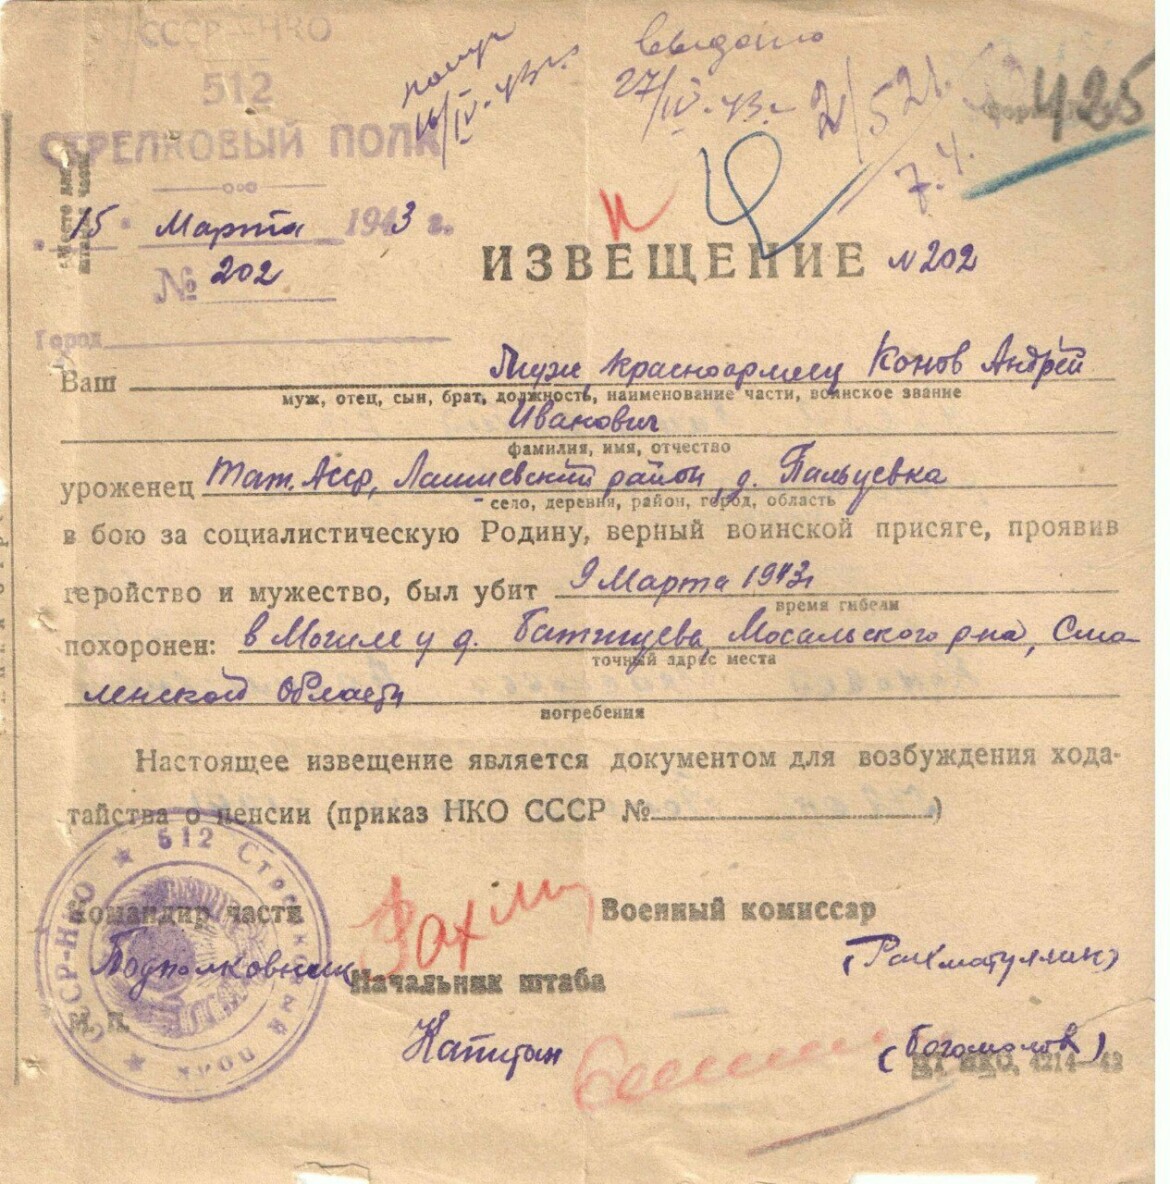 СССР-НКО
512
СТРЕЛКОВЫЙ ПОЛК
получ 16/IV-43г.
выдано
27/IV-43г.
2/521.
7.4.
425
"15" Марта 1943 г.
№ 202
Место для
штампа части
ИЗВЕЩЕНИЕ N 202
Город
Ваш Муж, красноармеец Конов Андрей
муж, отец, сын, брат, должность, наименование части, воинское звание
Иванович
фамилия, имя, отчество
уроженец Тат. Асср, Лаишевский район, д. Пальцевка
село, деревня, район, город, область
в бою за социалистическую Родину, верный воинской присяге, проявив
геройство и мужество, был убит 9 Марта 1943г
время гибели
похоронен: в Могиле у д. Мосальского р-на, Смо-
точный адрес места
ленской Области
погребения
Настоящее извещение является документом для возбуждения хода-
тайства о пенсии (приказ НКО СССР № )
СССР-НКО ★ 512 Стрелковый полк ★
Командир части
Военный комиссар
Подполковник
(Рахматуллин)
Начальник штаба
М. П.
Капитан
(Богомолов)
НКО, 4214—42